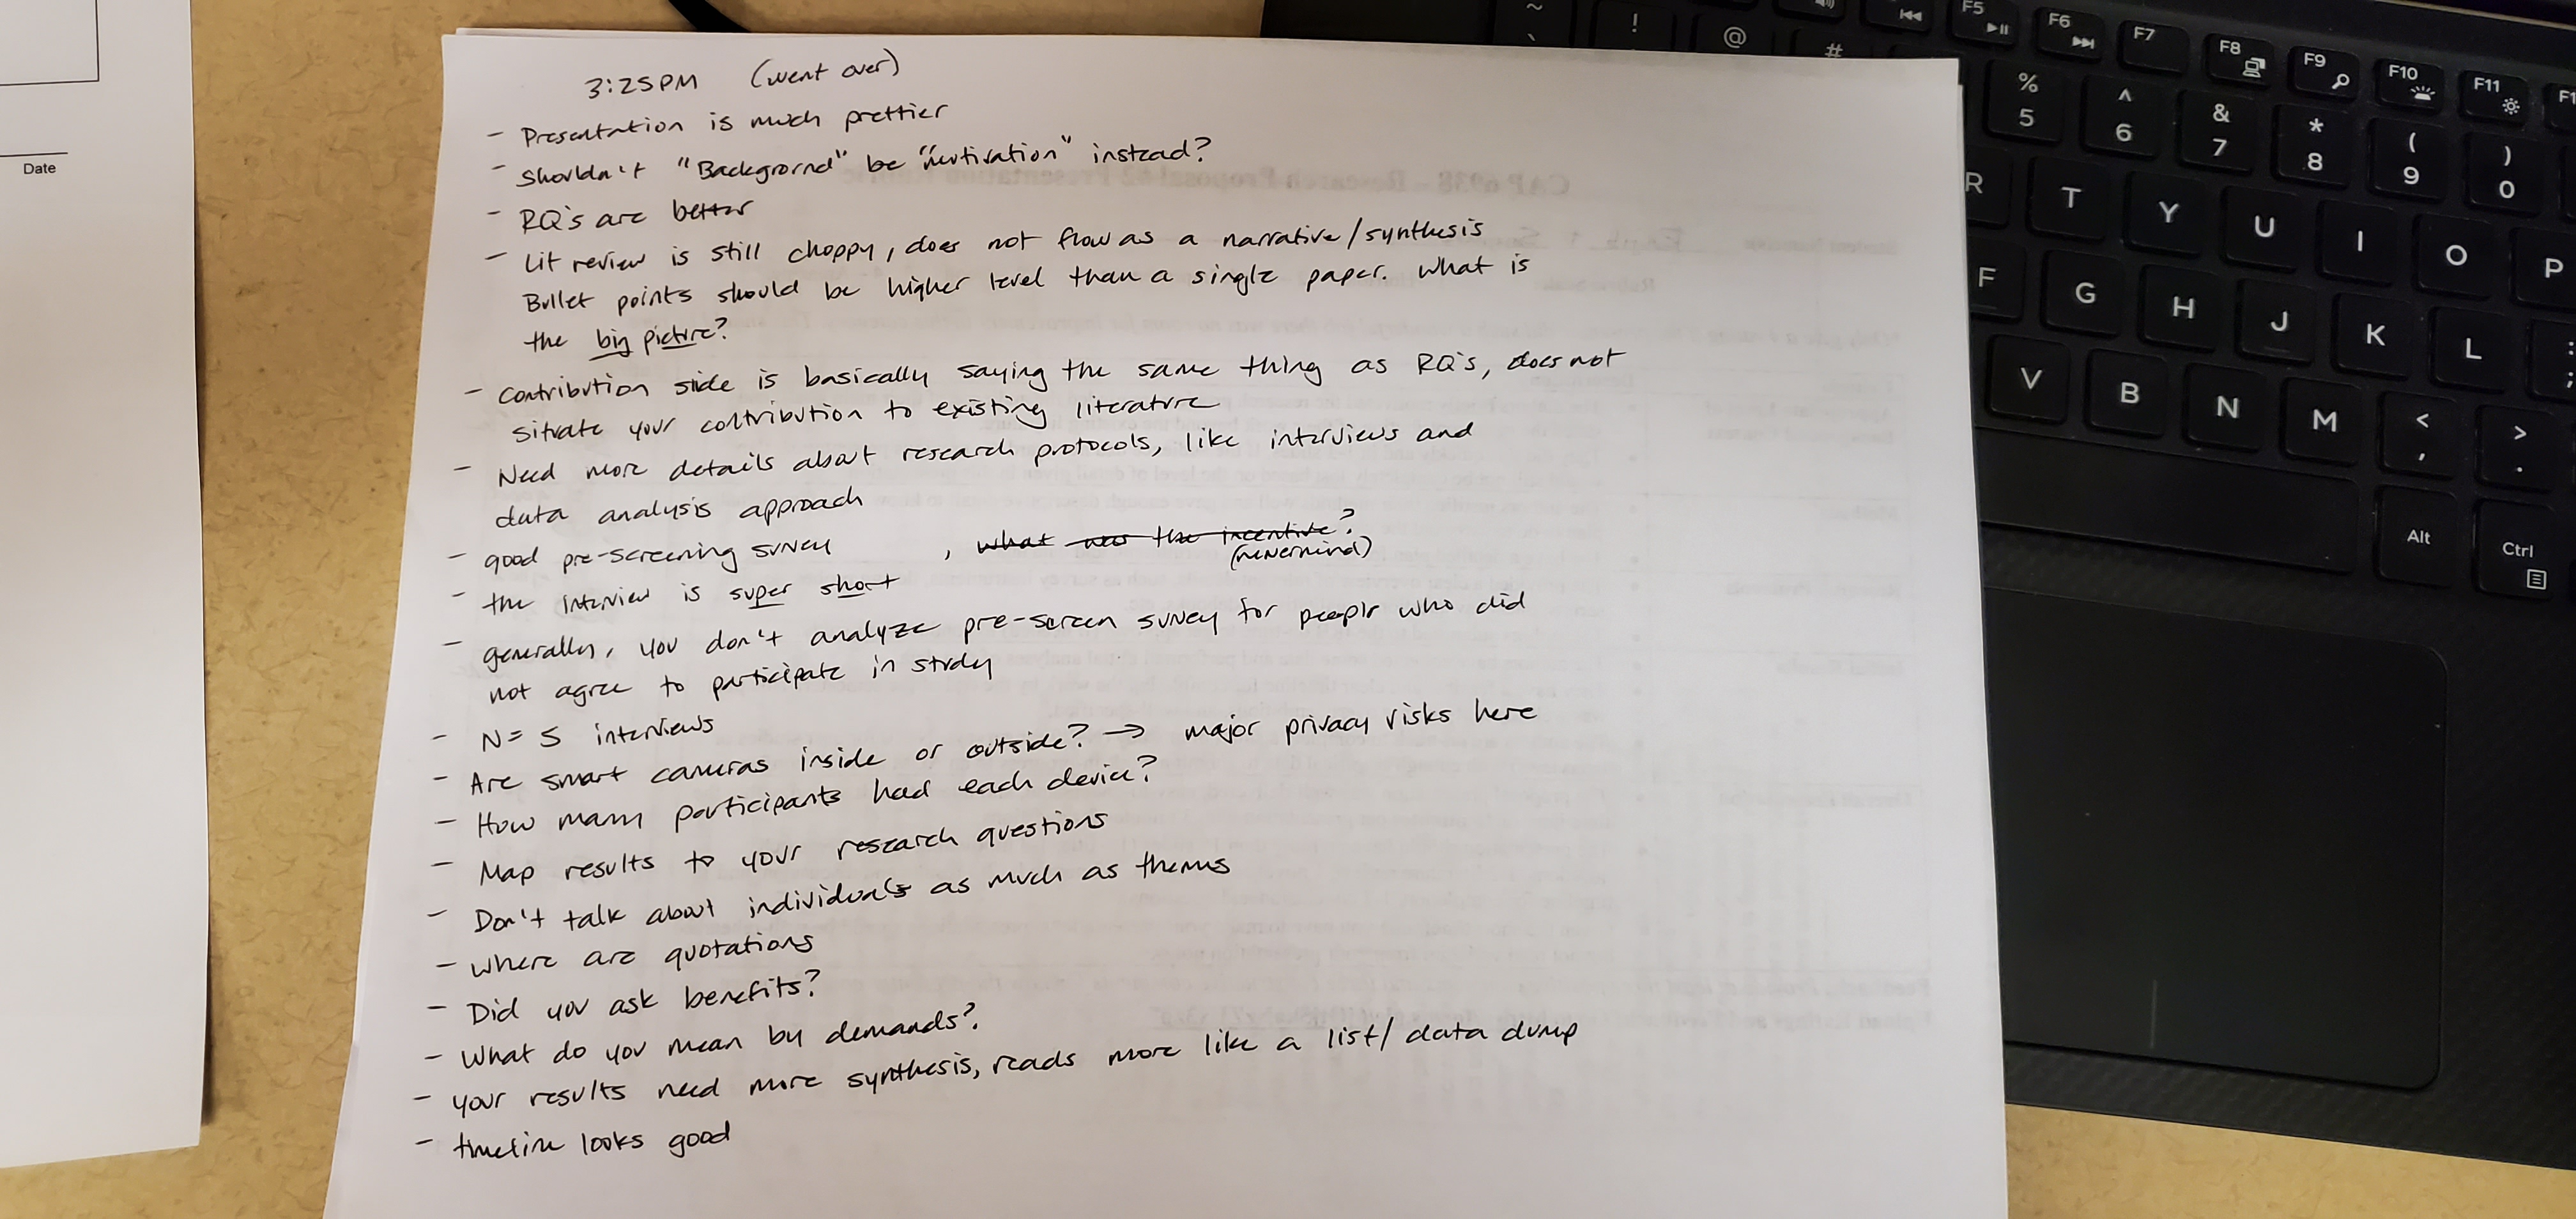 Date
3:25PM (went over)
- Presentation is much prettier
- Shouldn't "Background" be "Motivation" instead?
- RQ's are better
- Lit review is still choppy, does not flow as a narrative/synthesis
Bullet points should be higher level than a single paper. What is
the big picture?
- Contribution side is basically saying the same thing as RQ's, does not
situate your contribution to existing literature
- Need more details about research protocols, like interviews and
data analysis approach
- good pre-screening survey, what was the incentive?
(nevermind)
- the interview is super short
- generally, you don't analyze pre-screen survey for people who did
not agree to participate in study
- N=5 interviews
- Are smart cameras inside or outside? → major privacy risks here
- How many participants had each device?
- Map results to your research questions
- Don't talk about individuals as much as themes
- where are quotations
- Did you ask benefits?
- What do you mean by demands?
- your results need more synthesis, reads more like a list/data dump
- timeline looks good
~
`
!
@
#
F5
F6
F7
F8
F9
F10
F11
%
5
^
6
&
7
*
8
(
9
)
0
R
T
Y
U
I
O
P
F
G
H
J
K
L
:
;
V
B
N
M
<
,
>
.
Alt
Ctrl